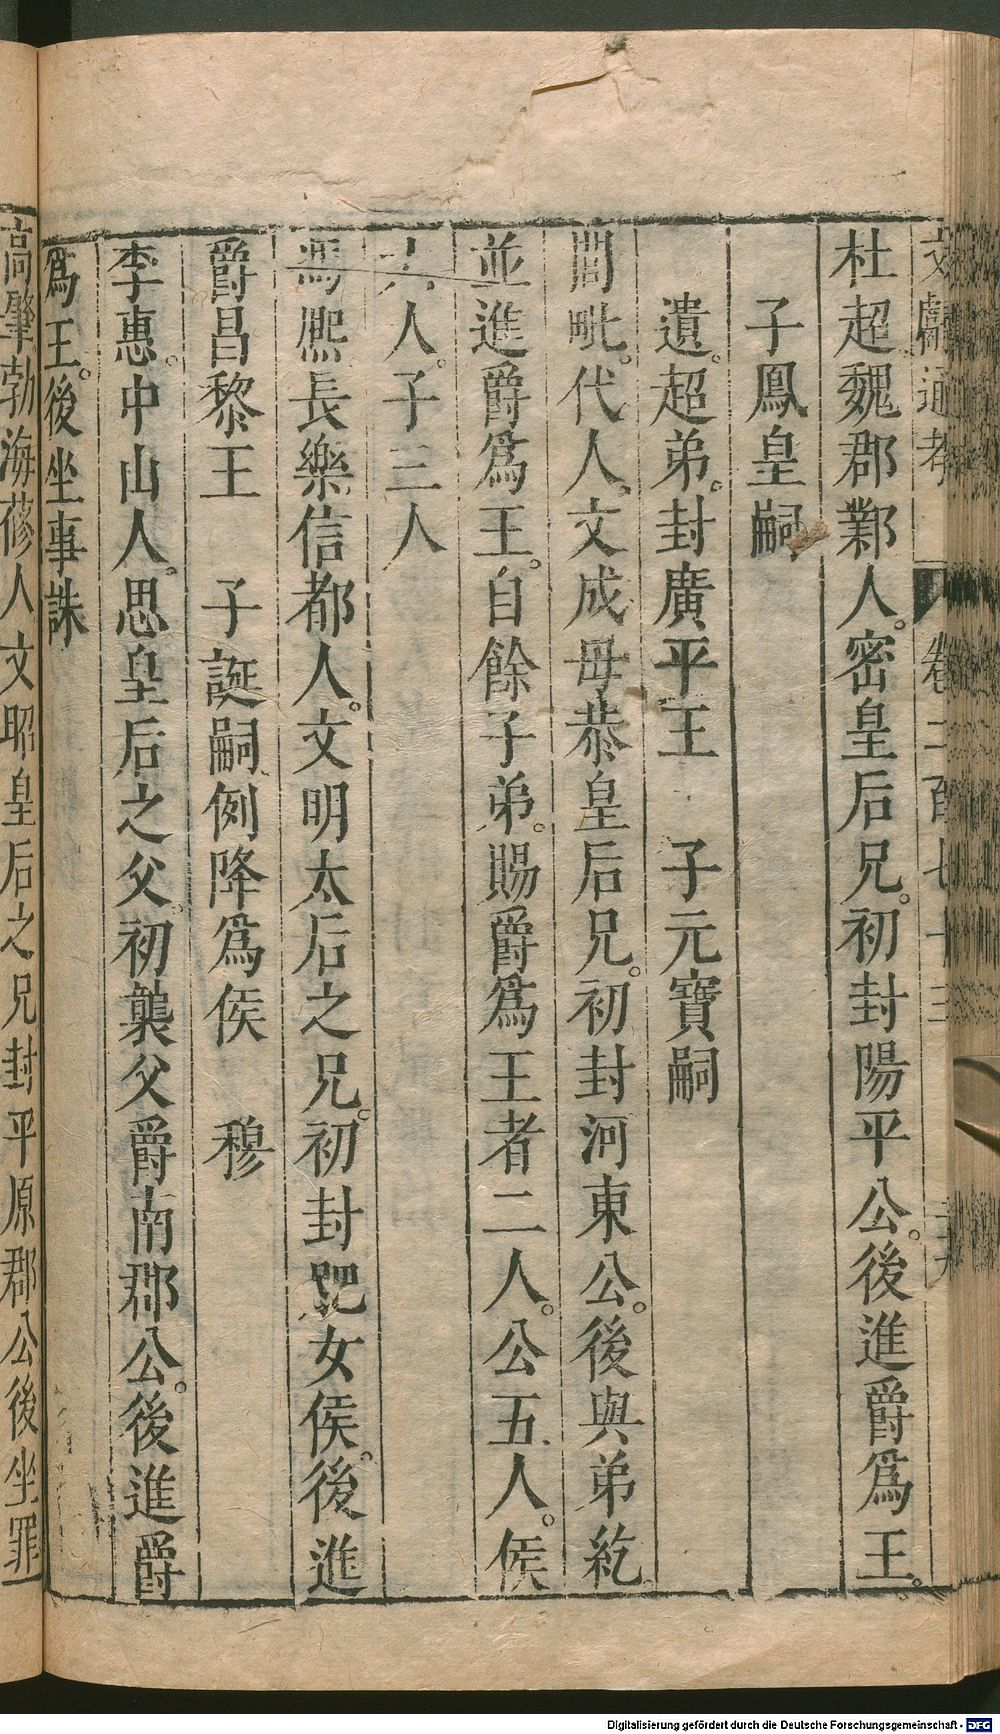 文獻通考 卷二百七十三
杜超魏郡鄴人。密皇后兄。初封陽平公。後進爵爲王。
子鳳皇嗣
遺。超弟。封廣平王 子元寶嗣
閭毗。代人。文成母恭皇后兄。初封河東公。後與弟紇
並進爵爲王。自餘子弟。賜爵爲王者二人。公五人。侯
六人。子三人
馮熈長樂信都人。文明太后之兄。初封肥女侯。後進
爵昌黎王 子誕嗣例降爲侯 穆
李惠。中山人。思皇后之父。初襲父爵南郡公。後進爵
爲王。後坐事誅
高肇勃海蓚人文昭皇后之兄封平原郡公後坐罪
Digitalisierung gefördert durch die Deutsche Forschungsgemeinschaft - DFG